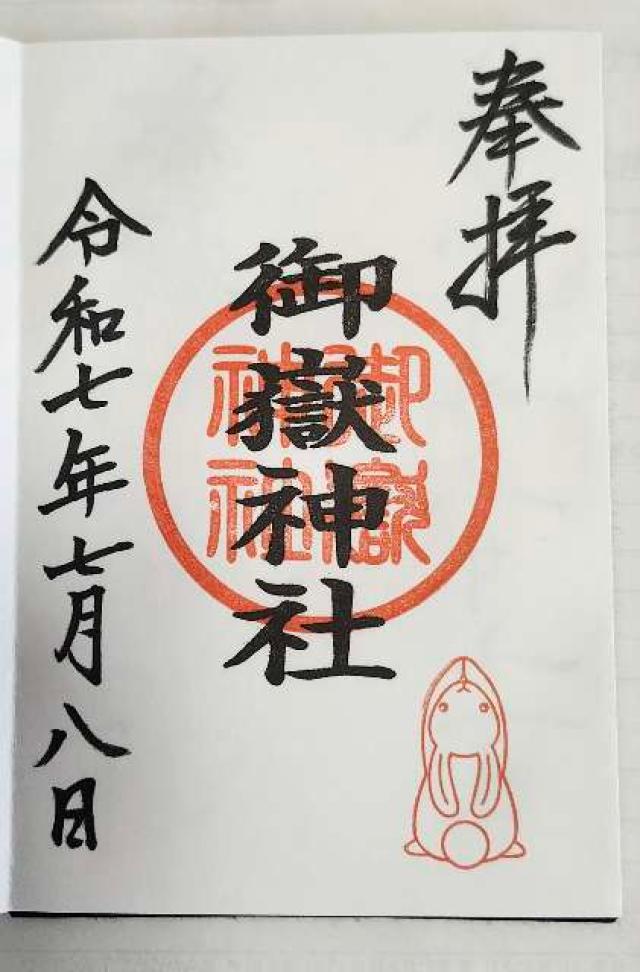 奉拝
御嶽神社
御嶽
神社
令和七年七月八日